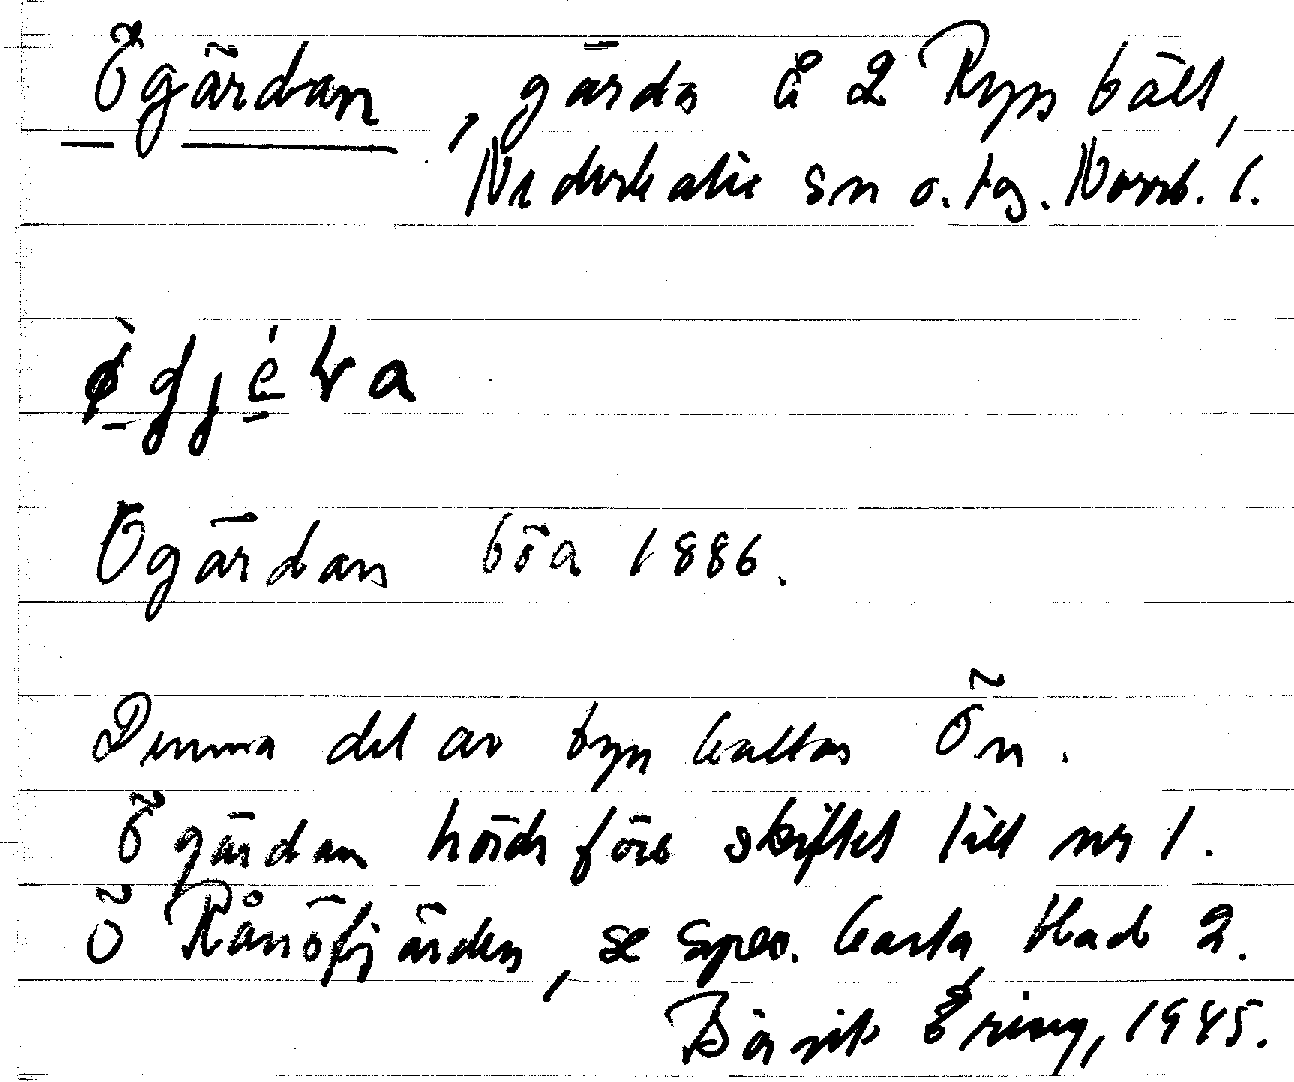 Ögärdan, gårds å 2 Ryss bält,
Nederkalix sn o. tg. Norrb. l.
Ögärdan böa 1886.
Denna del av byn kallas Ön.
Ögärdan hörde före skiftet till nr 1.
Ö Rånöfjärden, se spec. karta blad 2.
1945.